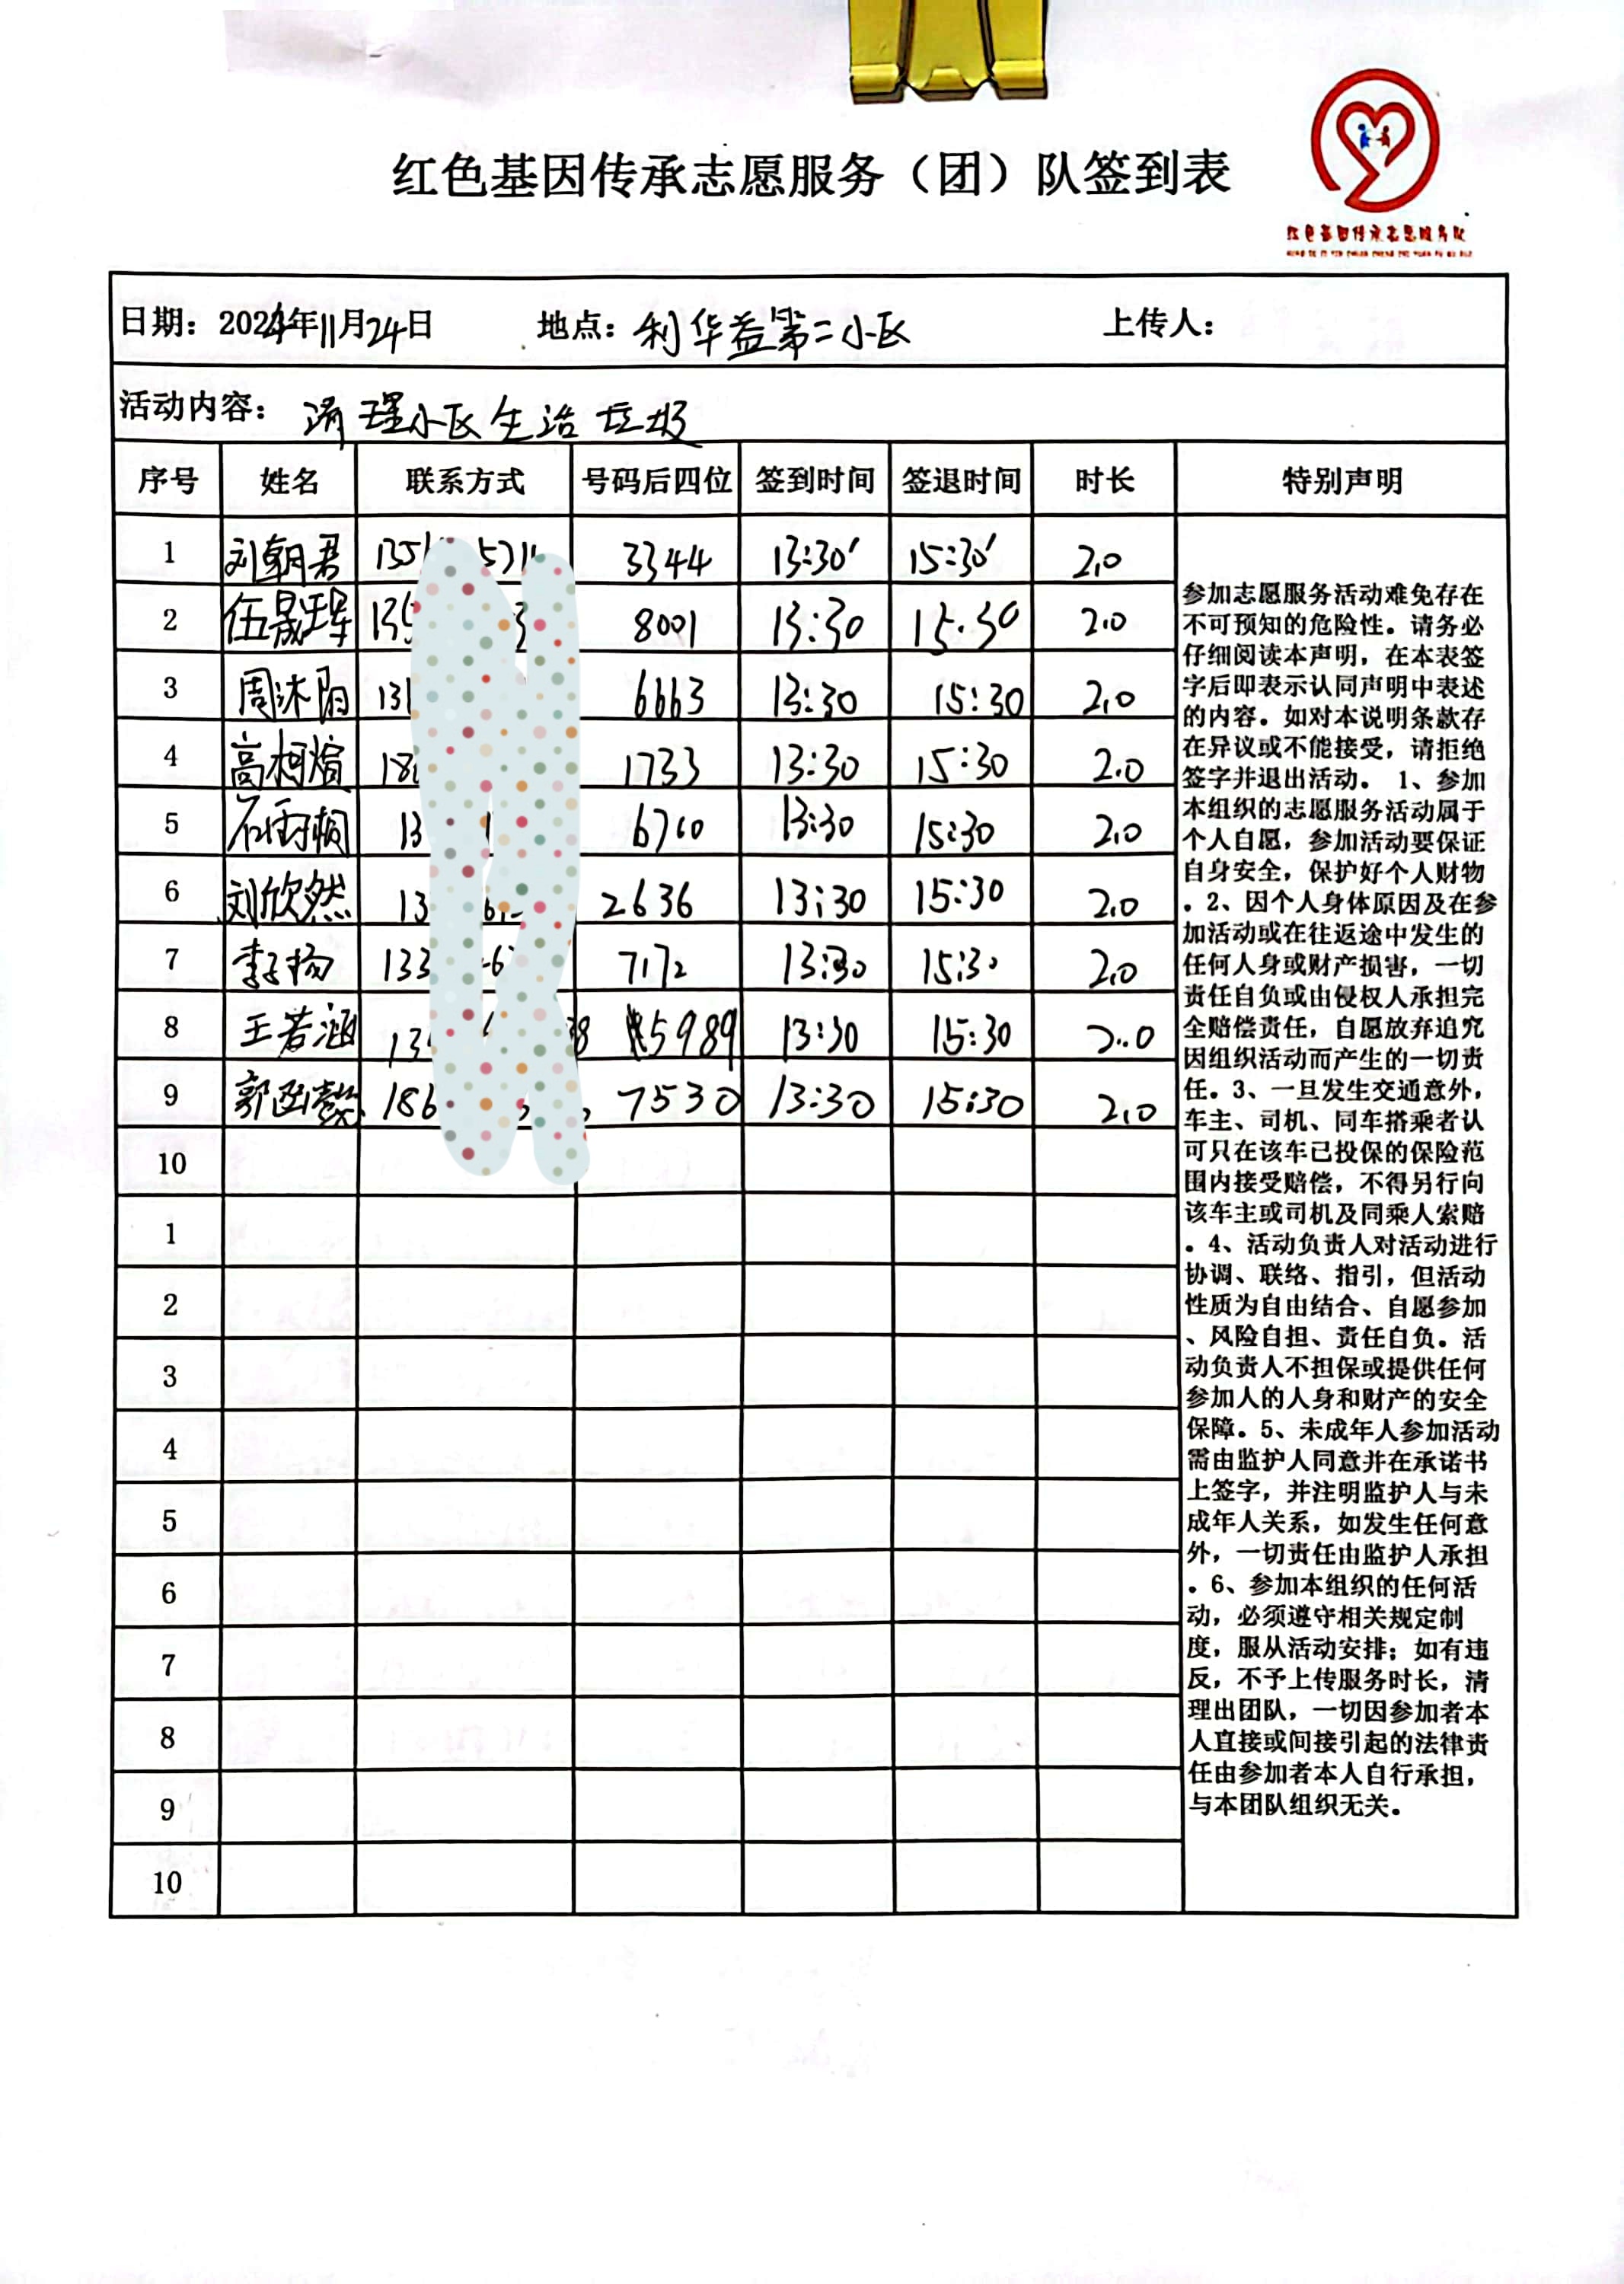 红色基因传承志愿服务（团）队签到表
红色基因传承志愿服务队
日期：2024年11月24日 地点：利华益第二小区 上传人：
活动内容：清理小区生活垃圾
序号 姓名 联系方式 号码后四位 签到时间 签退时间 时长 特别声明
1 刘朝君 135 571 3344 13:30' 15:30' 2.0
2 伍晟琿 135 3 8001 13:30 15:30 2.0
3 周沐阳 131 6663 13:30 15:30 2.0
4 高柯煊 18 1733 13:30 15:30 2.0
5 石雨桐 13 6710 13:30 15:30 2.0
6 刘欣然 13 2636 13:30 15:30 2.0
7 李子扬 133 6 7172 13:30 15:30 2.0
8 王若涵 13 8 5989 13:30 15:30 2.0
9 郭函懿 186 7530 13:30 15:30 2.0
10
1
2
3
4
5
6
7
8
9
10
参加志愿服务活动难免存在
不可预知的危险性。请务必
仔细阅读本声明，在本表签
字后即表示认同声明中表述
的内容。如对本说明条款存
在异议或不能接受，请拒绝
签字并退出活动。 1、参加
本组织的志愿服务活动属于
个人自愿，参加活动要保证
自身安全，保护好个人财物
。2、因个人身体原因及在参
加活动或在往返途中发生的
任何人身或财产损害，一切
责任自负或由侵权人承担完
全赔偿责任，自愿放弃追究
因组织活动而产生的一切责
任。3、一旦发生交通意外，
车主、司机、同车搭乘者认
可只在该车已投保的保险范
围内接受赔偿，不得另行向
该车主或司机及同乘人索赔
。4、活动负责人对活动进行
协调、联络、指引，但活动
性质为自由结合、自愿参加
、风险自担、责任自负。活
动负责人不担保或提供任何
参加人的人身和财产的安全
保障。5、未成年人参加活动
需由监护人同意并在承诺书
上签字，并注明监护人与未
成年人关系，如发生任何意
外，一切责任由监护人承担
。6、参加本组织的任何活
动，必须遵守相关规定制
度，服从活动安排；如有违
反，不予上传服务时长，清
理出团队，一切因参加者本
人直接或间接引起的法律责
任由参加者本人自行承担，
与本团队组织无关。